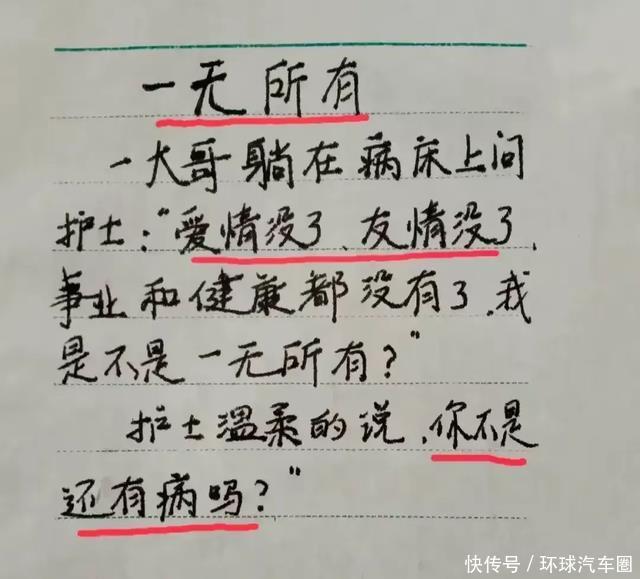 一无所有
一大哥躺在病床上问
护士:"爱情没了、友情没了、
事业和健康都没有了.我
是不是一无所有?"
护士温柔的说.你不是
还有病吗?"
快传号/环球汽车圈